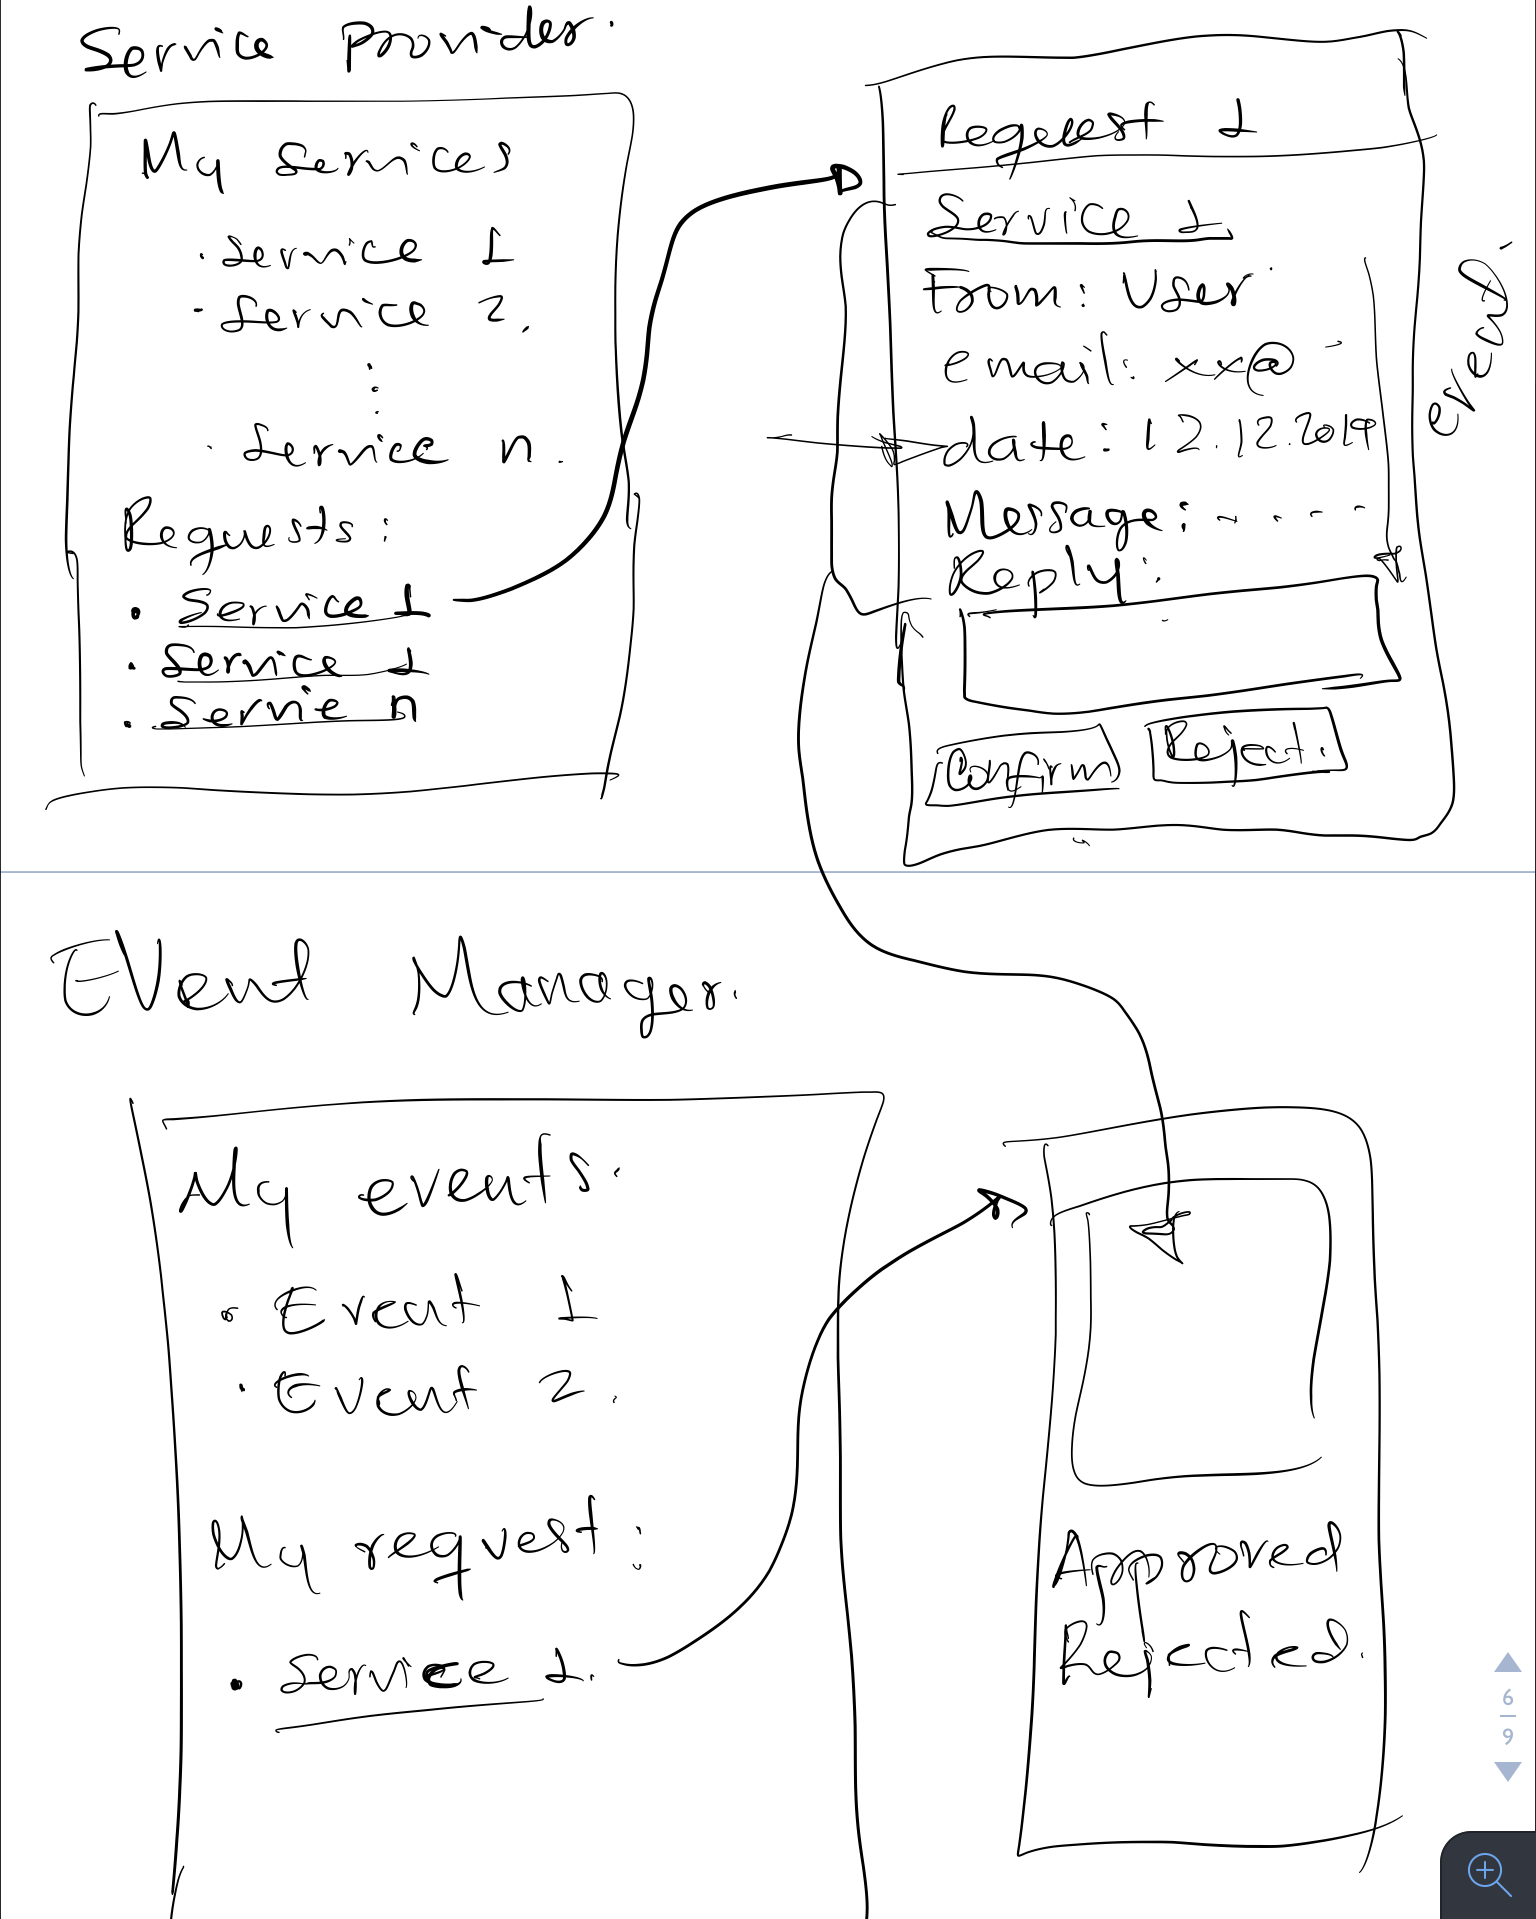 Service Provider.
My services
· Service 1
· Service 2.
· Service n.
Requests:
• Service 1
• Service 1
• Servie n
Request 1
Service 1
From: User
email: xx@
date: 12.12.2019
Message: - - - -
Reply:
Confirm
Reject.
event.
EVent Manager.
My events.
• Event 1
• Event 2.
My request:
• Service 1.
Approved
Rejected.
6
9